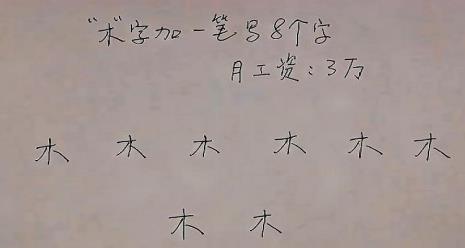 “木”字加一笔写8个字
月工资：3万
木 木 木 木 木 木
木 木